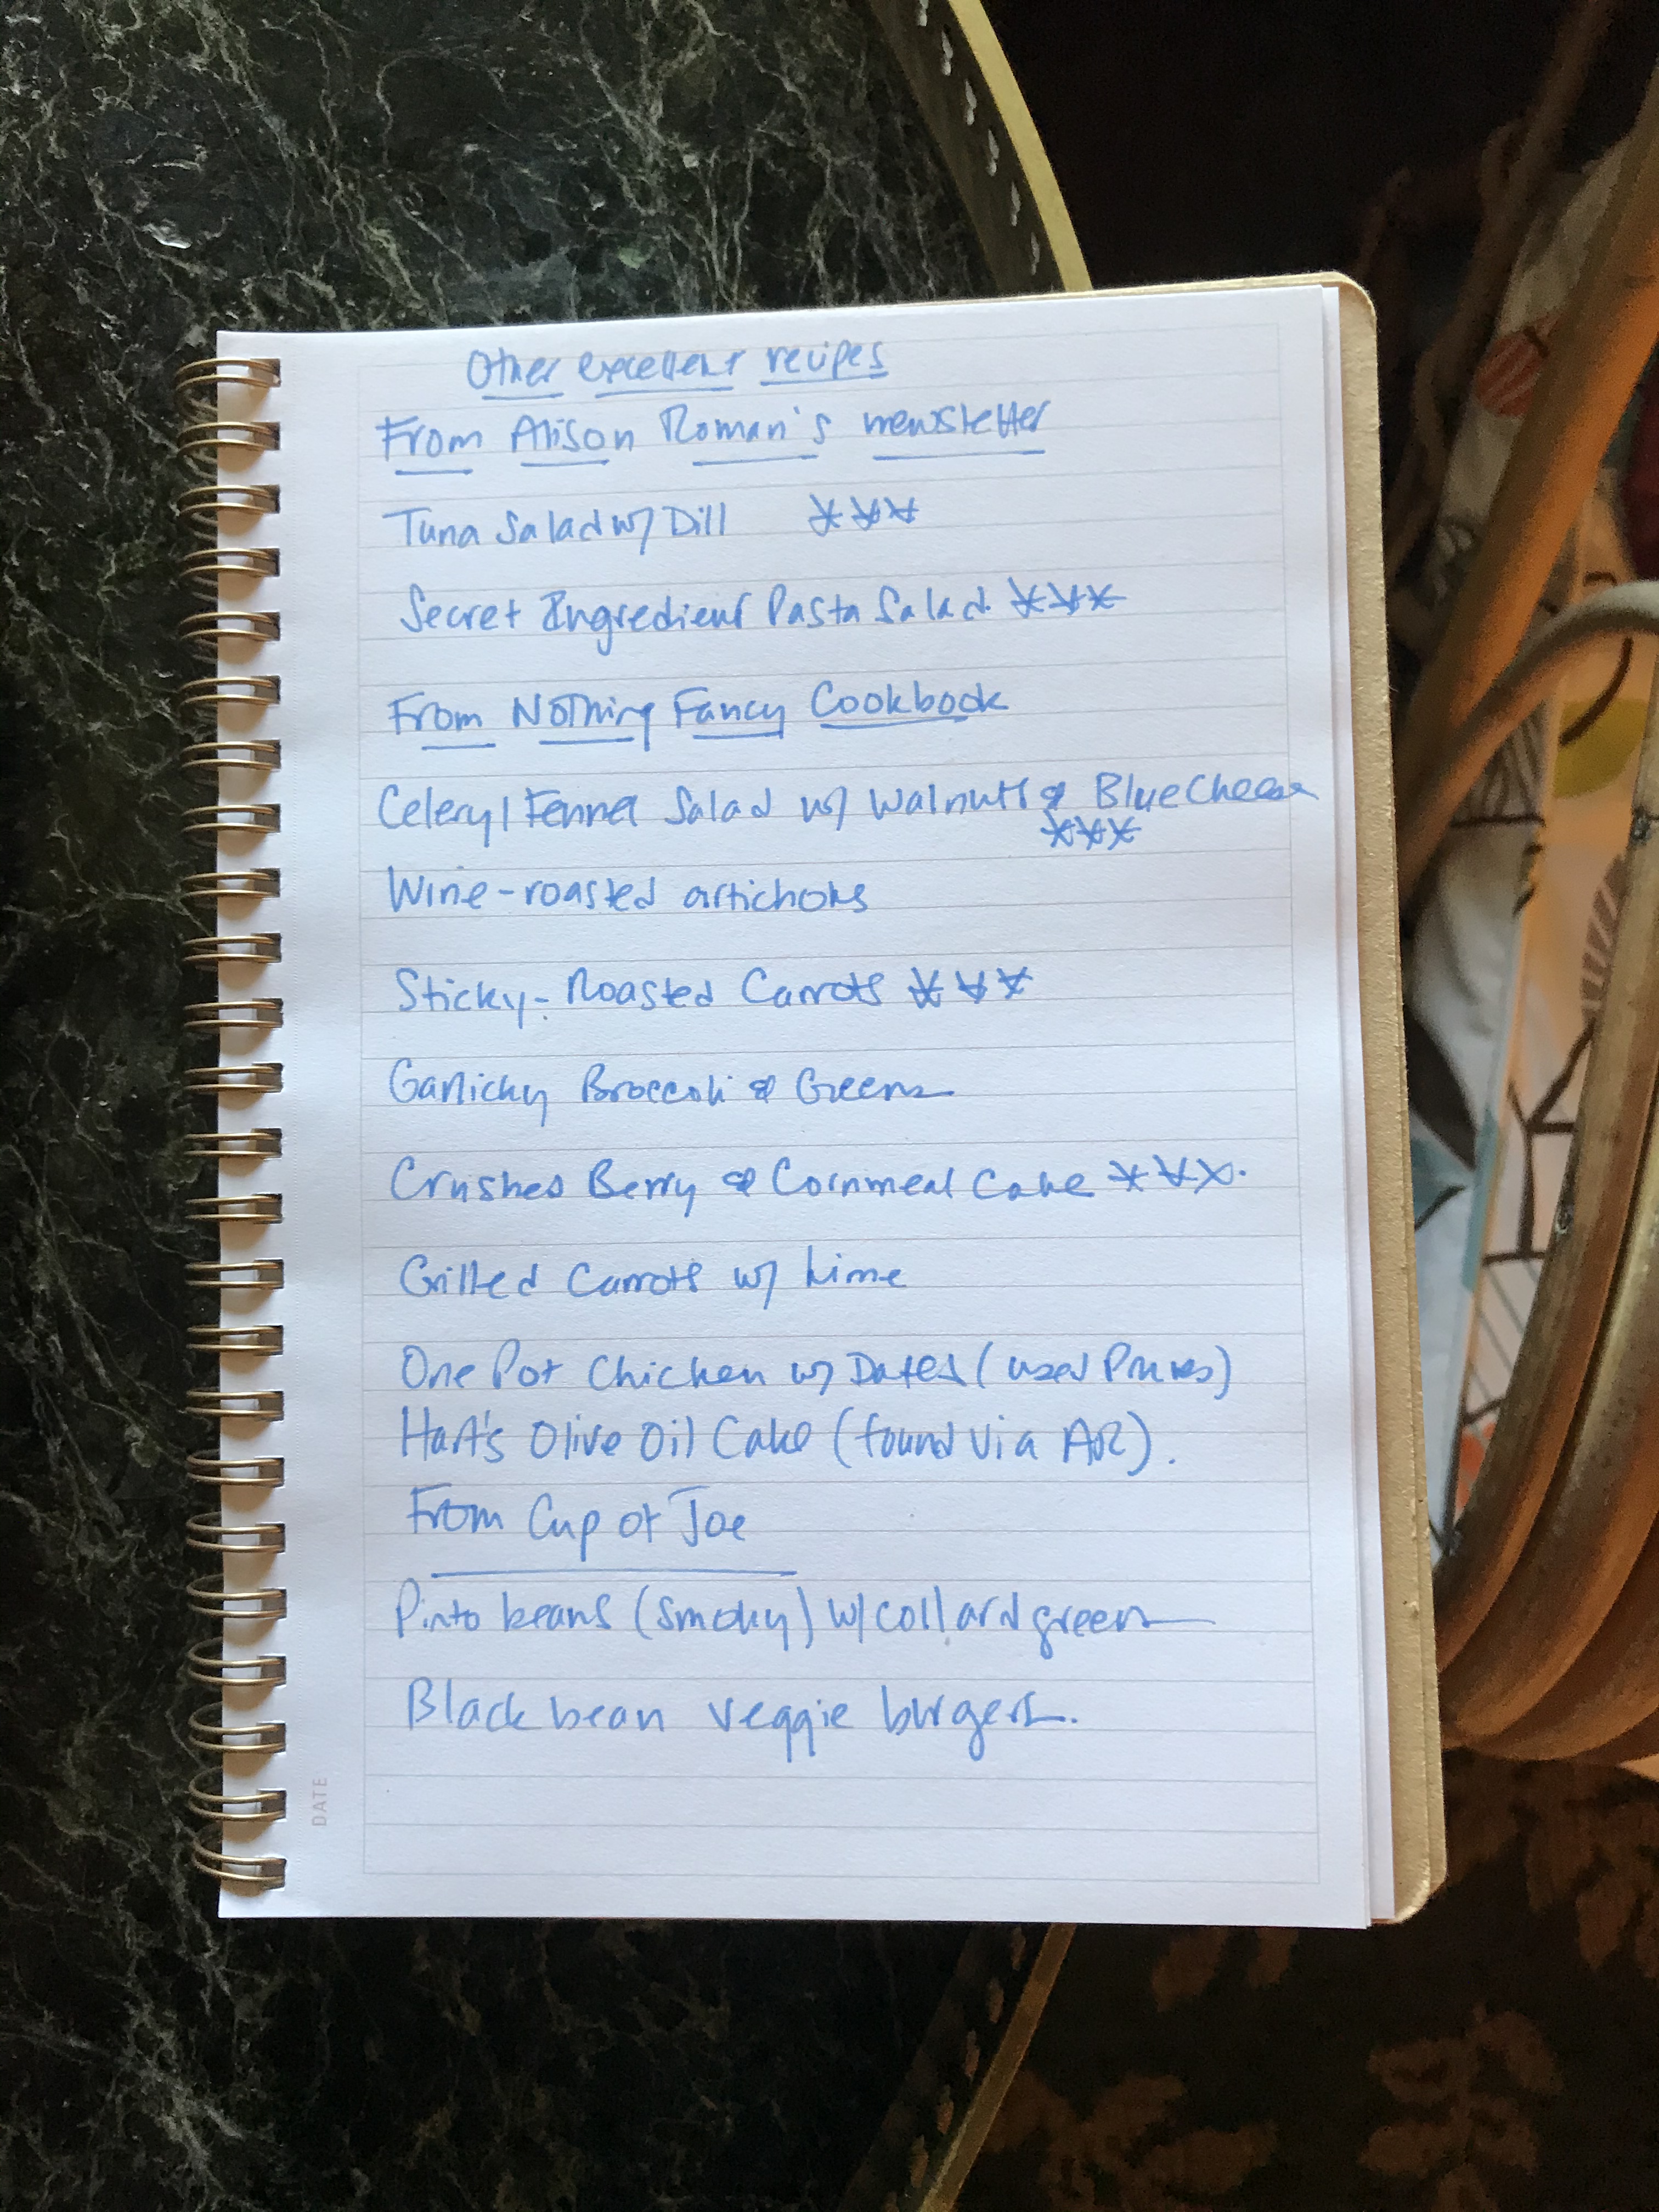 Other excellent recipes
From Alison Roman's newsletter
Tuna Salad w/ Dill ***
Secret Ingredient Pasta Salad ***
From Nothing Fancy Cookbook
Celery/Fennel Salad w/ Walnuts & Blue Cheese
***
Wine-roasted artichoks
Sticky-Roasted Carrots ***
Garlicky Broccoli & Greens
Crushed Berry & Cornmeal Cake ***.
Grilled Carrots w/ Lime
One Pot Chicken w/ Dates (used Prunes)
Hart's Olive Oil Cake (found via AR).
From Cup of Joe
Pinto beans (smoky) w/ collard greens
Black bean veggie burgers.
DATE